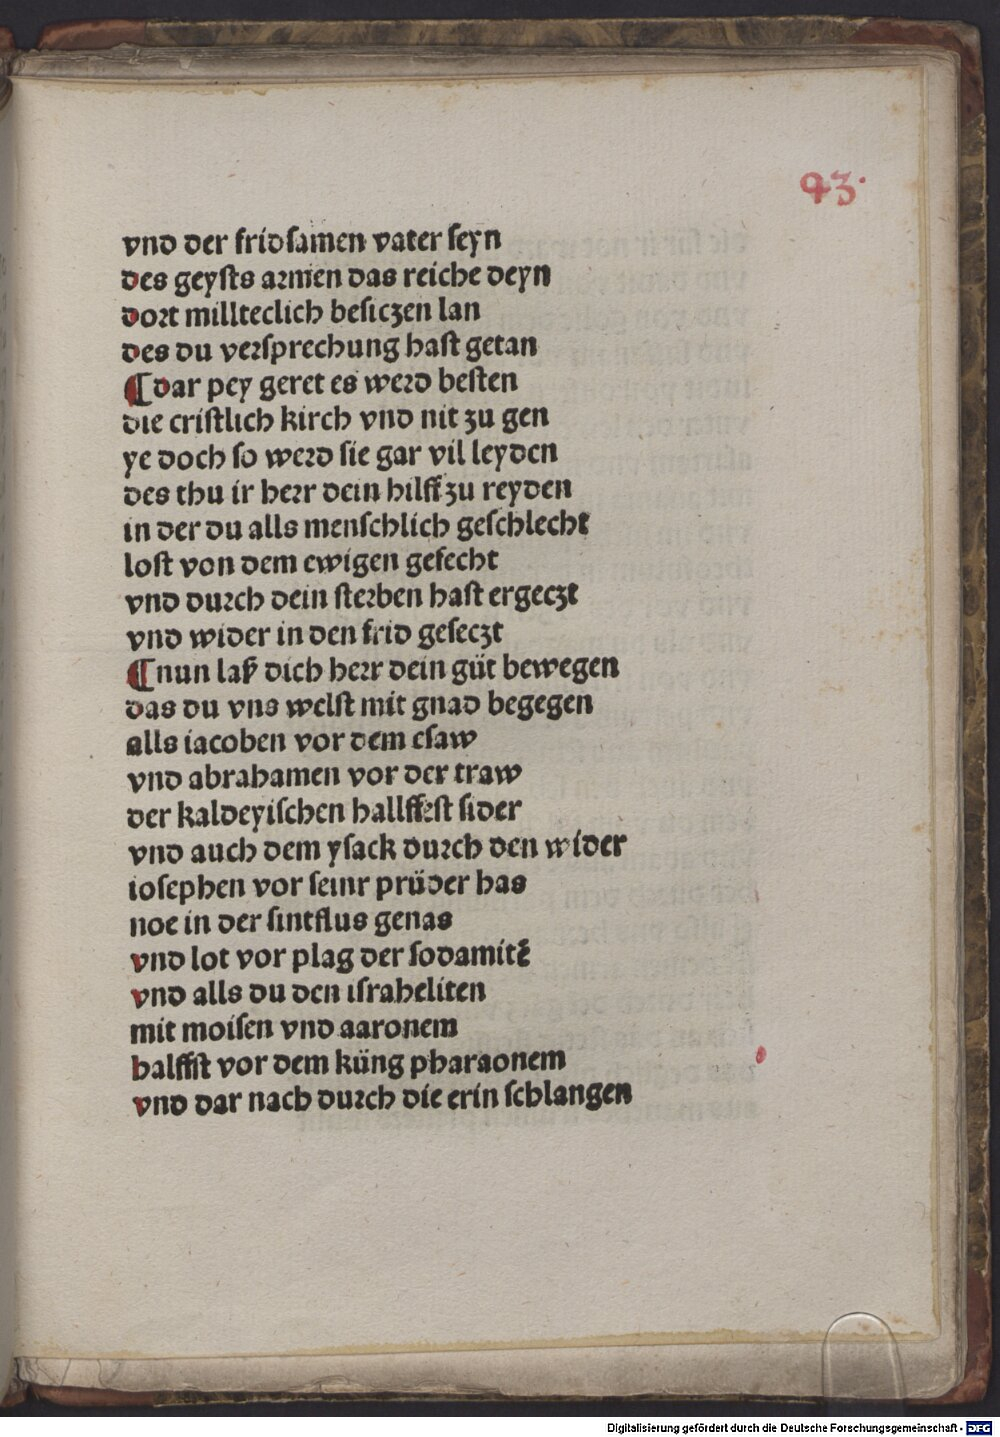 93.
vnd der fridsamen vater seyn
des geysts armen das reiche deyn
dort millteclich besiczen lan
des du versprechung hast getan
¶dar pey geret es werd besten
die cristlich kirch vnd nit zu gen
ye doch so werd sie gar vil leyden
des thu ir herr dein hilff zu reyden
in der du alls menschlich geschlecht
lost von dem ewigen gefecht
vnd durch dein sterben hast ergeczt
vnd wider in den frid geseczt
¶nun laß dich herr dein güt bewegen
das du vns welst mit gnad begegen
alls iacoben vor dem esaw
vnd abrahamen vor der traw
der kaldeyischen hallffest sider
vnd auch dem ysack durch den wider
iosephen vor seinr prüder has
noe in der sintflus genas
vnd lot vor plag der sodamitē
vnd alls du den israheliten
mit moisen vnd aaronem
halffst vor dem küng pharaonem
vnd dar nach durch die erin schlangen
Digitalisierung gefördert durch die Deutsche Forschungsgemeinschaft - DFG